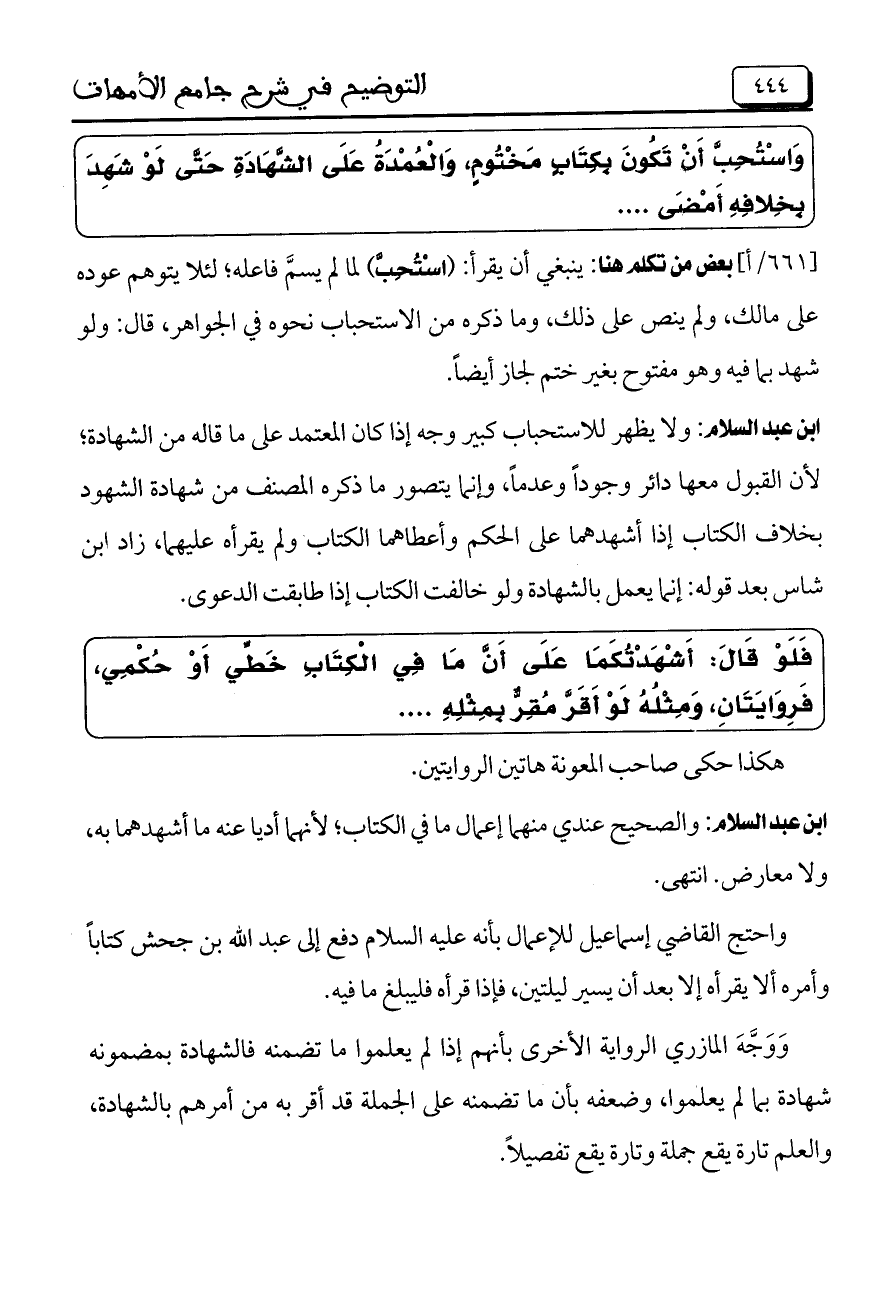 ٤٤٤
التوضيح في شرح جامع الأمهات
وَاسْتُحِبَّ أَنْ تَكُونَ بِكِتَابٍ مَخْتُومٍ، وَالْعُمْدَةُ عَلَى الشَّهَادَةِ حَتَّى لَوْ شَهِدَ
بِخِلافِهِ أَمْضَى ....
[٦٦١/ أ] بعض من تكلم هنا: ينبغي أن يقرأ: (اسْتُحِبَّ) لما لم يسمَّ فاعله؛ لئلا يتوهم عوده
على مالك، ولم ينص على ذلك، وما ذكره من الاستحباب نحوه في الجواهر، قال: ولو
شهد بما فيه وهو مفتوح بغير ختم لجاز أيضاً.
ابن عبد السلام: ولا يظهر للاستحباب كبير وجه إذا كان المعتمد على ما قاله من الشهادة؛
لأن القبول معها دائر وجوداً وعدماً، وإنما يتصور ما ذكره المصنف من شهادة الشهود
بخلاف الكتاب إذا أشهدهما على الحكم وأعطاهما الكتاب ولم يقرأه عليهما، زاد ابن
شاس بعد قوله: إنما يعمل بالشهادة ولو خالفت الكتاب إذا طابقت الدعوى.
فَلَوْ قَالَ: أَشْهَدْتُكُمَا عَلَى أَنَّ مَا فِي الْكِتَابِ خَطِّي أَوْ حُكْمِي،
فَرِوَايَتَانِ، وَمِثْلُهُ لَوْ أَقَرَّ مُقِرٌّ بِمِثْلِهِ ....
هكذا حكى صاحب المعونة هاتين الروايتين.
ابن عبد السلام: والصحيح عندي منهما إعمال ما في الكتاب؛ لأنهما أديا عنه ما أشهدهما به،
ولا معارض. انتهى.
واحتج القاضي إسماعيل للإعمال بأنه عليه السلام دفع إلى عبد الله بن جحش كتاباً
وأمره ألا يقرأه إلا بعد أن يسير ليلتين، فإذا قرأه فليبلغ ما فيه.
وَوَجَّهَ المازري الرواية الأخرى بأنهم إذا لم يعلموا ما تضمنه فالشهادة بمضمونه
شهادة بما لم يعلموا، وضعفه بأن ما تضمنه على الجملة قد أقر به من أمرهم بالشهادة،
والعلم تارة يقع جملة وتارة يقع تفصيلاً.